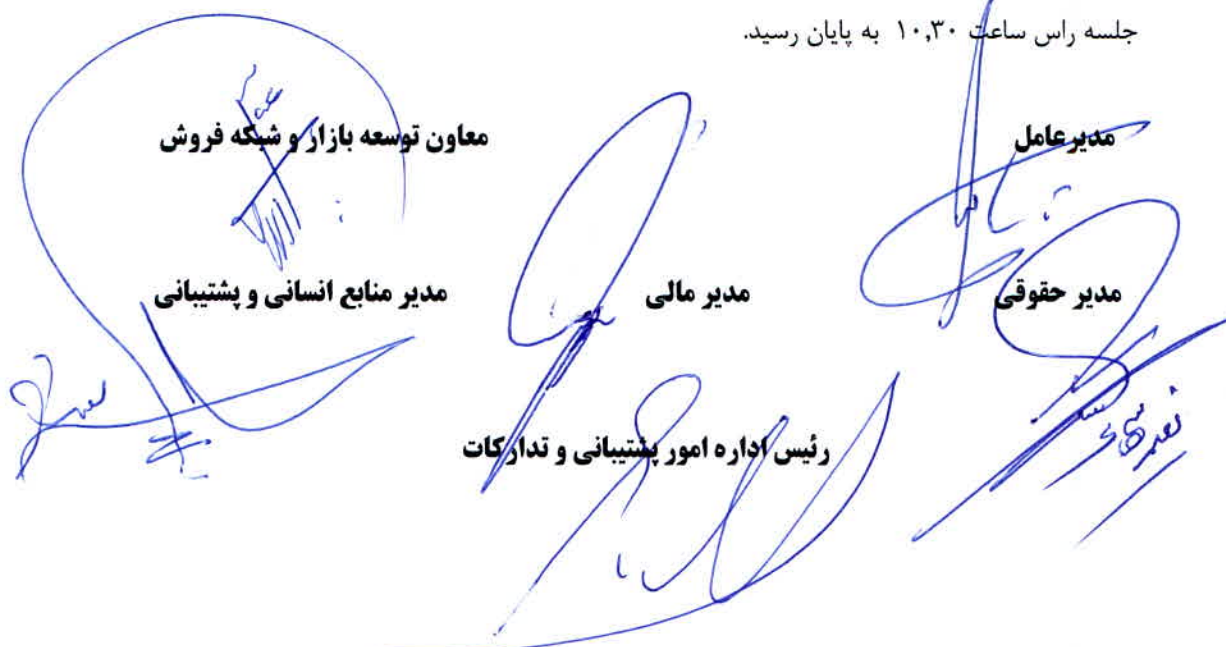 جلسه راس ساعت ۱۰,۳۰ به پایان رسید.
مدیرعامل معاون توسعه بازار و شبکه فروش
مدیر حقوقی مدیر مالی مدیر منابع انسانی و پشتیبانی
رئیس اداره امور پشتیبانی و تدارکات